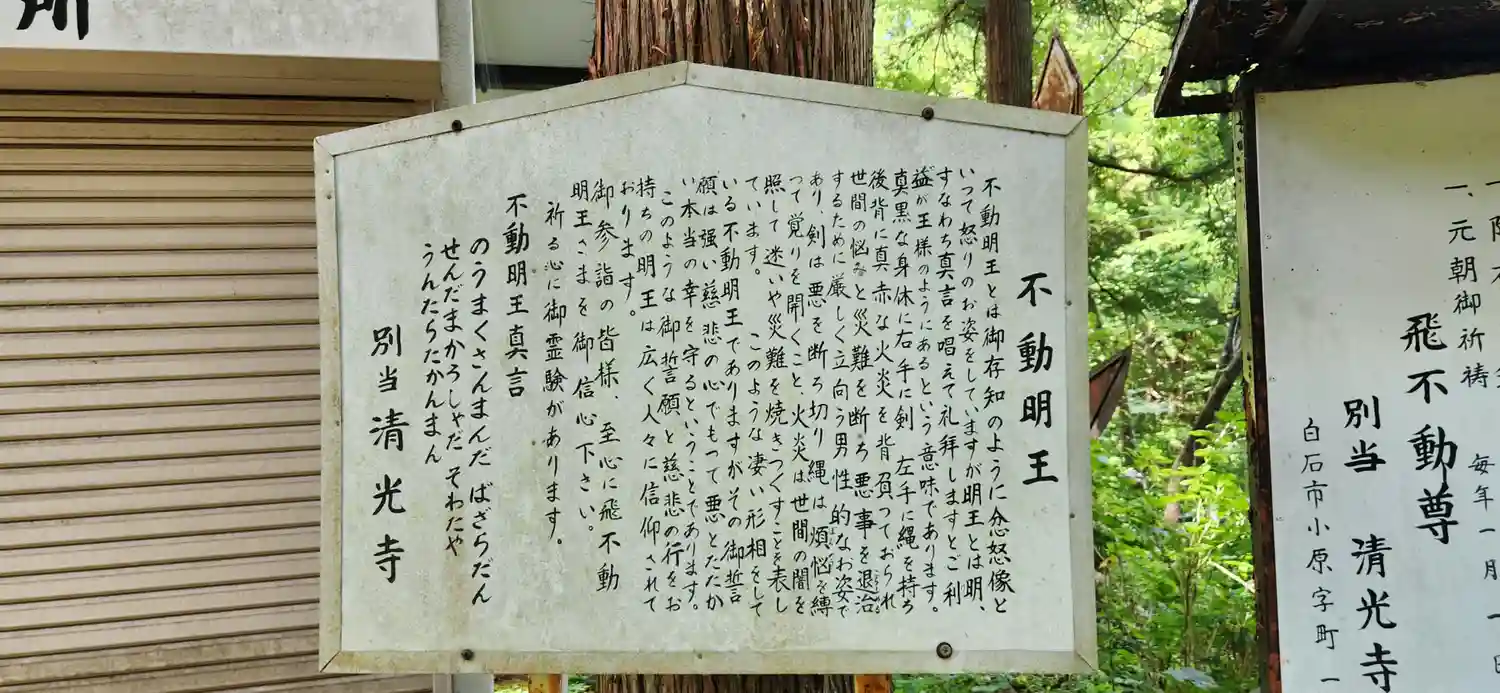 一、元朝御祈祷
毎年一月一日
飛不動尊
別当 清光寺
白石市小原字町一
不動明王
不動明王とは御存知のように忿怒像と
いって怒りのお姿をしていますが明王とは明、
すなわち真言を唱えて礼拝しますとご利
益が王様のようにあるという意味であります。
真黒な身体に右手に剣 左手に縄を持ち
後背に真赤な火炎を背負っておられ
世間の悩みと災難を断ち悪事を退治
するために厳しく立向う男性的なお姿で
あり、剣は悪を断ち切り縄は煩悩を縛
って覚りを開くこと、火炎は世間の闇を
照して迷いや災難を焼きつくすことを表し
ています。 このような凄い形相をして
いる不動明王でありますがその御誓
願は強い慈悲の心でもって悪とたたか
い本当の幸を守るということであります。
このような御誓願と慈悲の行をお
持ちの明王は広く人々に信仰されて
おります。
御参詣の皆様、至心に飛不動
明王さまを御信心下さい。
祈る心に御霊験があります。
不動明王真言
のうまくさんまんだ ばざらだん
せんだまかろしゃだ そわたや
うんたらたかんまん
別当 清光寺
所